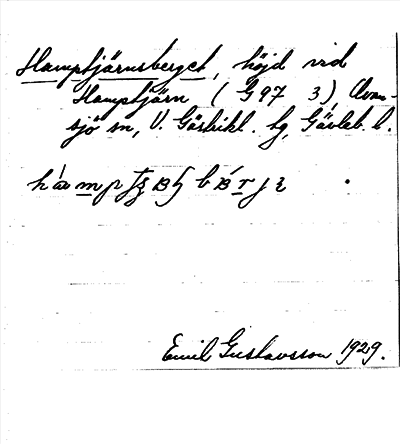 Hamptjärnsberget, höjd vid
Hamptjärn (G 97 3) Ovan-
sjö sn, V. Gästrikl. hg, Gävleb. l.
Emil Gustavsson 1929.